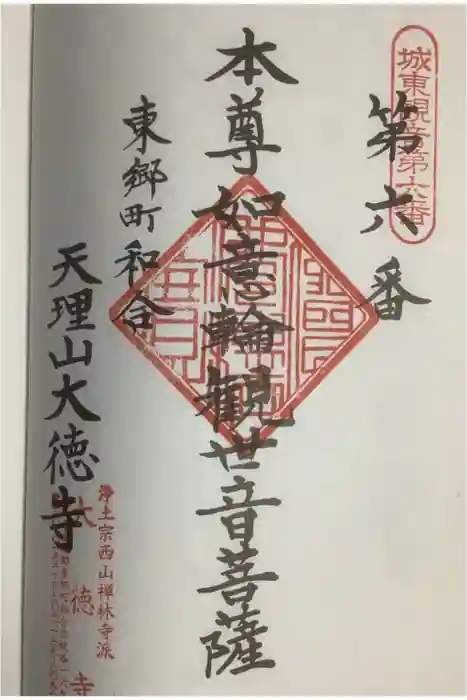 城東観音第六番
第六番
本尊如意輪観世音菩薩
東郷町和合
天理山大徳寺
浄土宗西山禅林寺派
大徳寺